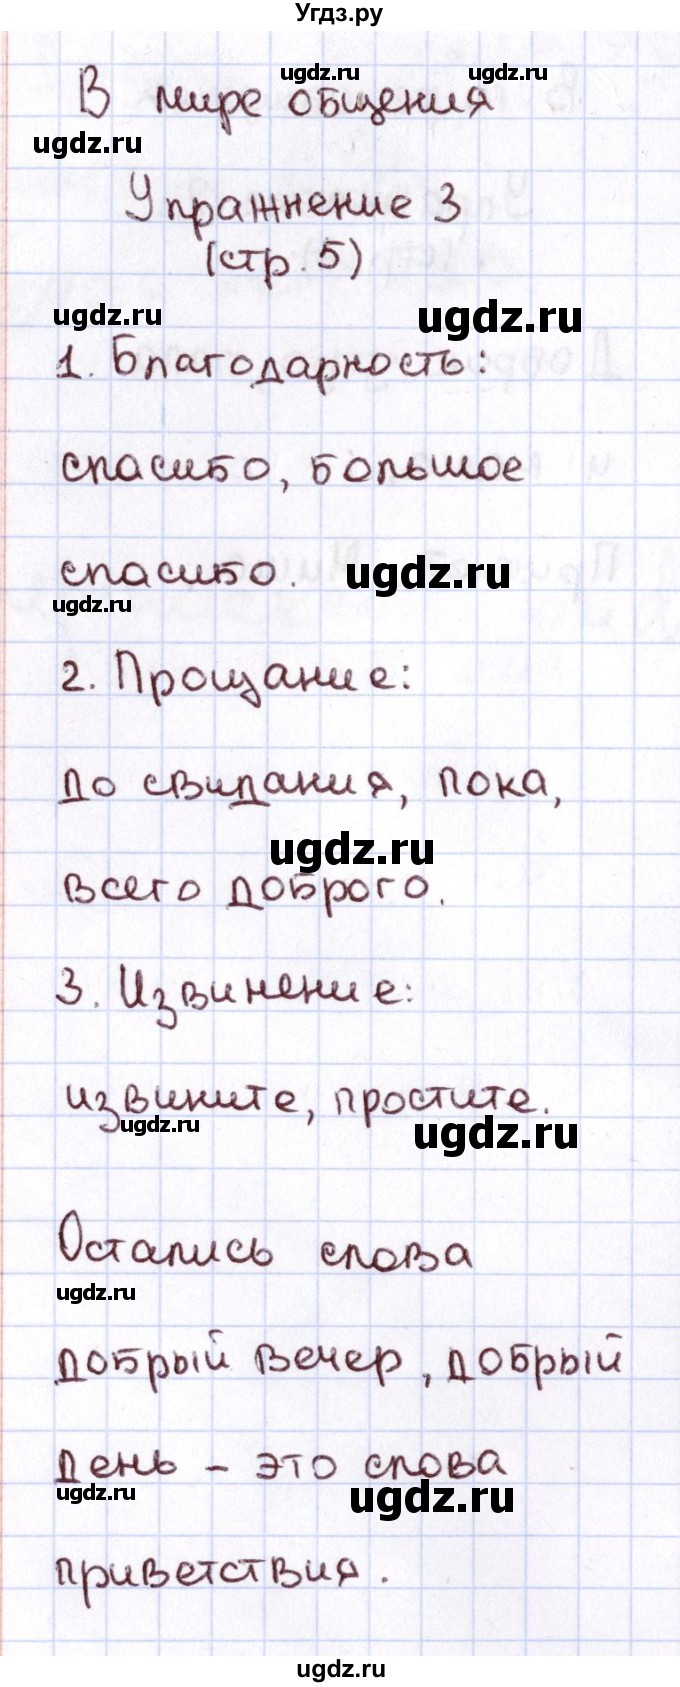 Угдз.ру
ugdz.ru ugdz.ru
В мире общения
ugdz.ru
Упражнение 3
(стр. 5)
ugdz.ru ugdz.ru
1. Благодарность:
спасибо, большое
спасибо. ugdz.ru
ugdz.ru
2. Прощание:
до свидания, пока,
ugdz.ru
всего доброго.
3. Извинение:
извините, простите.
ugdz.ru ugdz.ru
Остались слова
ugdz.ru
добрый вечер, добрый
день – это слова
ugdz.ru ugdz.ru
приветствия.
ugdz.ru